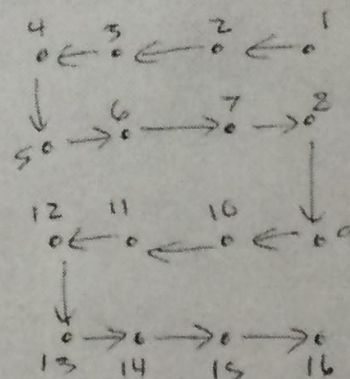 4 3 2 1
5 6 7 8
12 11 10
13 14 15 16